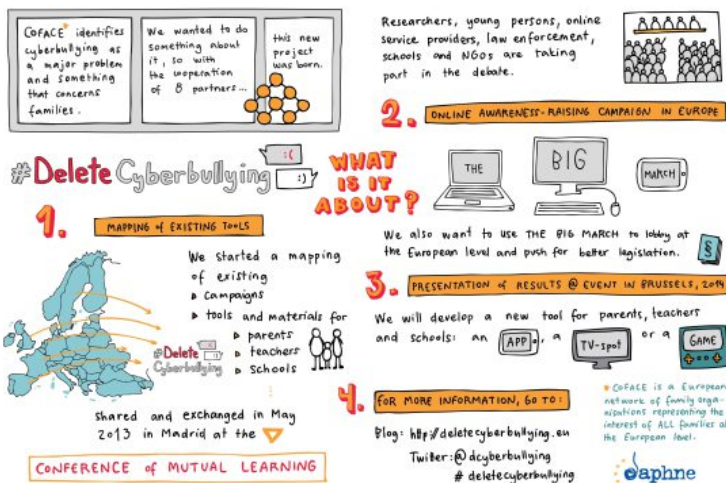 COFACE* identifies
cyberbullying as
a major problem
and something
that concerns
families.
We wanted to do
something about
it, so with
the cooperation
of 8 partners...
this new
project
was born.
#DeleteCyberbullying
:(
:)
WHAT
IS IT
ABOUT?
1.
MAPPING of EXISTING TOOLS
We started a mapping
of existing
campaigns
tools and materials for
parents
teachers
schools
#Delete
Cyberbullying
shared and exchanged in May
2013 in Madrid at the
CONFERENCE of MUTUAL LEARNING
Researchers, young persons, online
service providers, law enforcement,
schools and NGOs are taking
part in the debate.
2.
ONLINE AWARENESS-RAISING CAMPAIGN IN EUROPE
THE
BIG
MARCH
We also want to use THE BIG MARCH to lobby at
the European level and push for better legislation.
§
3.
PRESENTATION of RESULTS @ EVENT IN BRUSSELS, 2014
We will develop a new tool for parents, teachers
and schools: an APP, a TV-spot or a GAME
4.
FOR MORE INFORMATION, GO TO:
Blog: http://deletecyberbullying.eu
Twitter: @dcyberbullying
# deletecyberbullying
* COFACE is a European
network of family orga-
nisations representing the
interest of ALL families at
the European level.
daphne